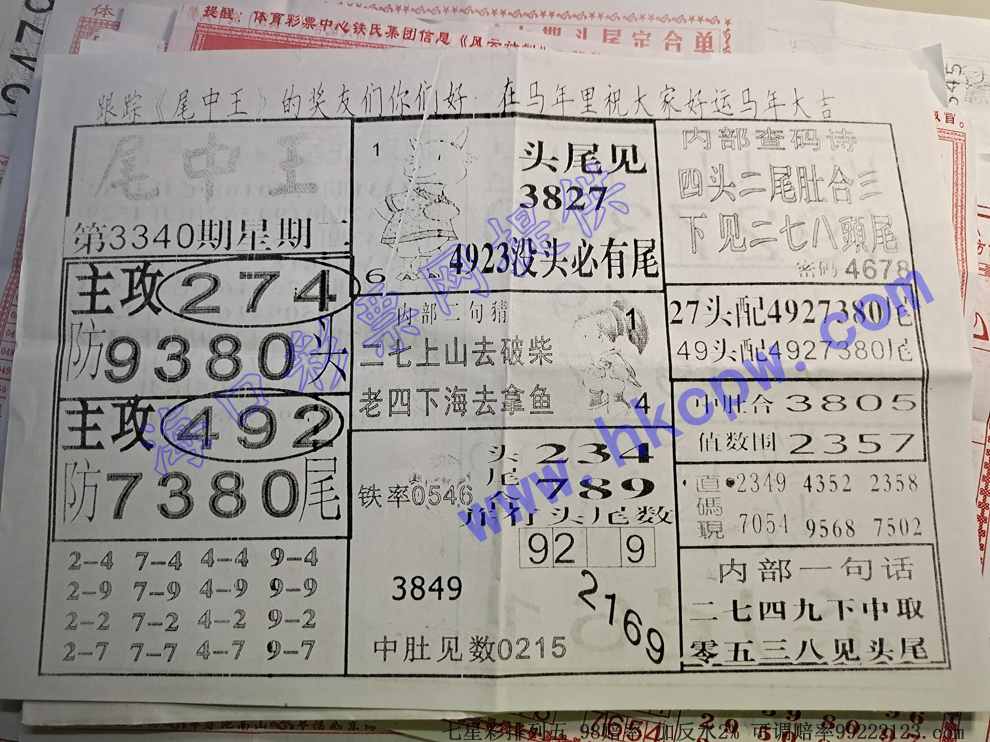 提醒：体育彩票中心铁氏集团信息《风云
头尾定合单
跟踪《尾中王》的奖友们你们好：在马年里祝大家好运马年大吉
尾中王
第3340期星期二
主攻274
防9380头
主攻492
防7380尾
2-4 7-4 4-4 9-4
2-9 7-9 4-9 9-9
2-2 7-2 4-2 9-2
2-7 7-7 4-7 9-7
1
6
头尾见
3827
4923没头必有尾
内部二句猜
二七上山去破柴
老四下海去拿鱼
1
4
铁率0546
头尾合
234
789
并打头尾数
92 9
3849
2169
中肚见数0215
内部查码诗
四头二尾肚合三
下见二七八頭尾
密码4678
27头配4927380尾
49头配4927380尾
中肚合3805
值数围2357
直碼現
2349 4352 2358
7054 9568 7502
内部一句话
二七四九下中取
零五三八见头尾
海口彩票网提供
www.hkcpw.com
七星彩排列五 98赔率 加反水2% 可调赔率99223123.com